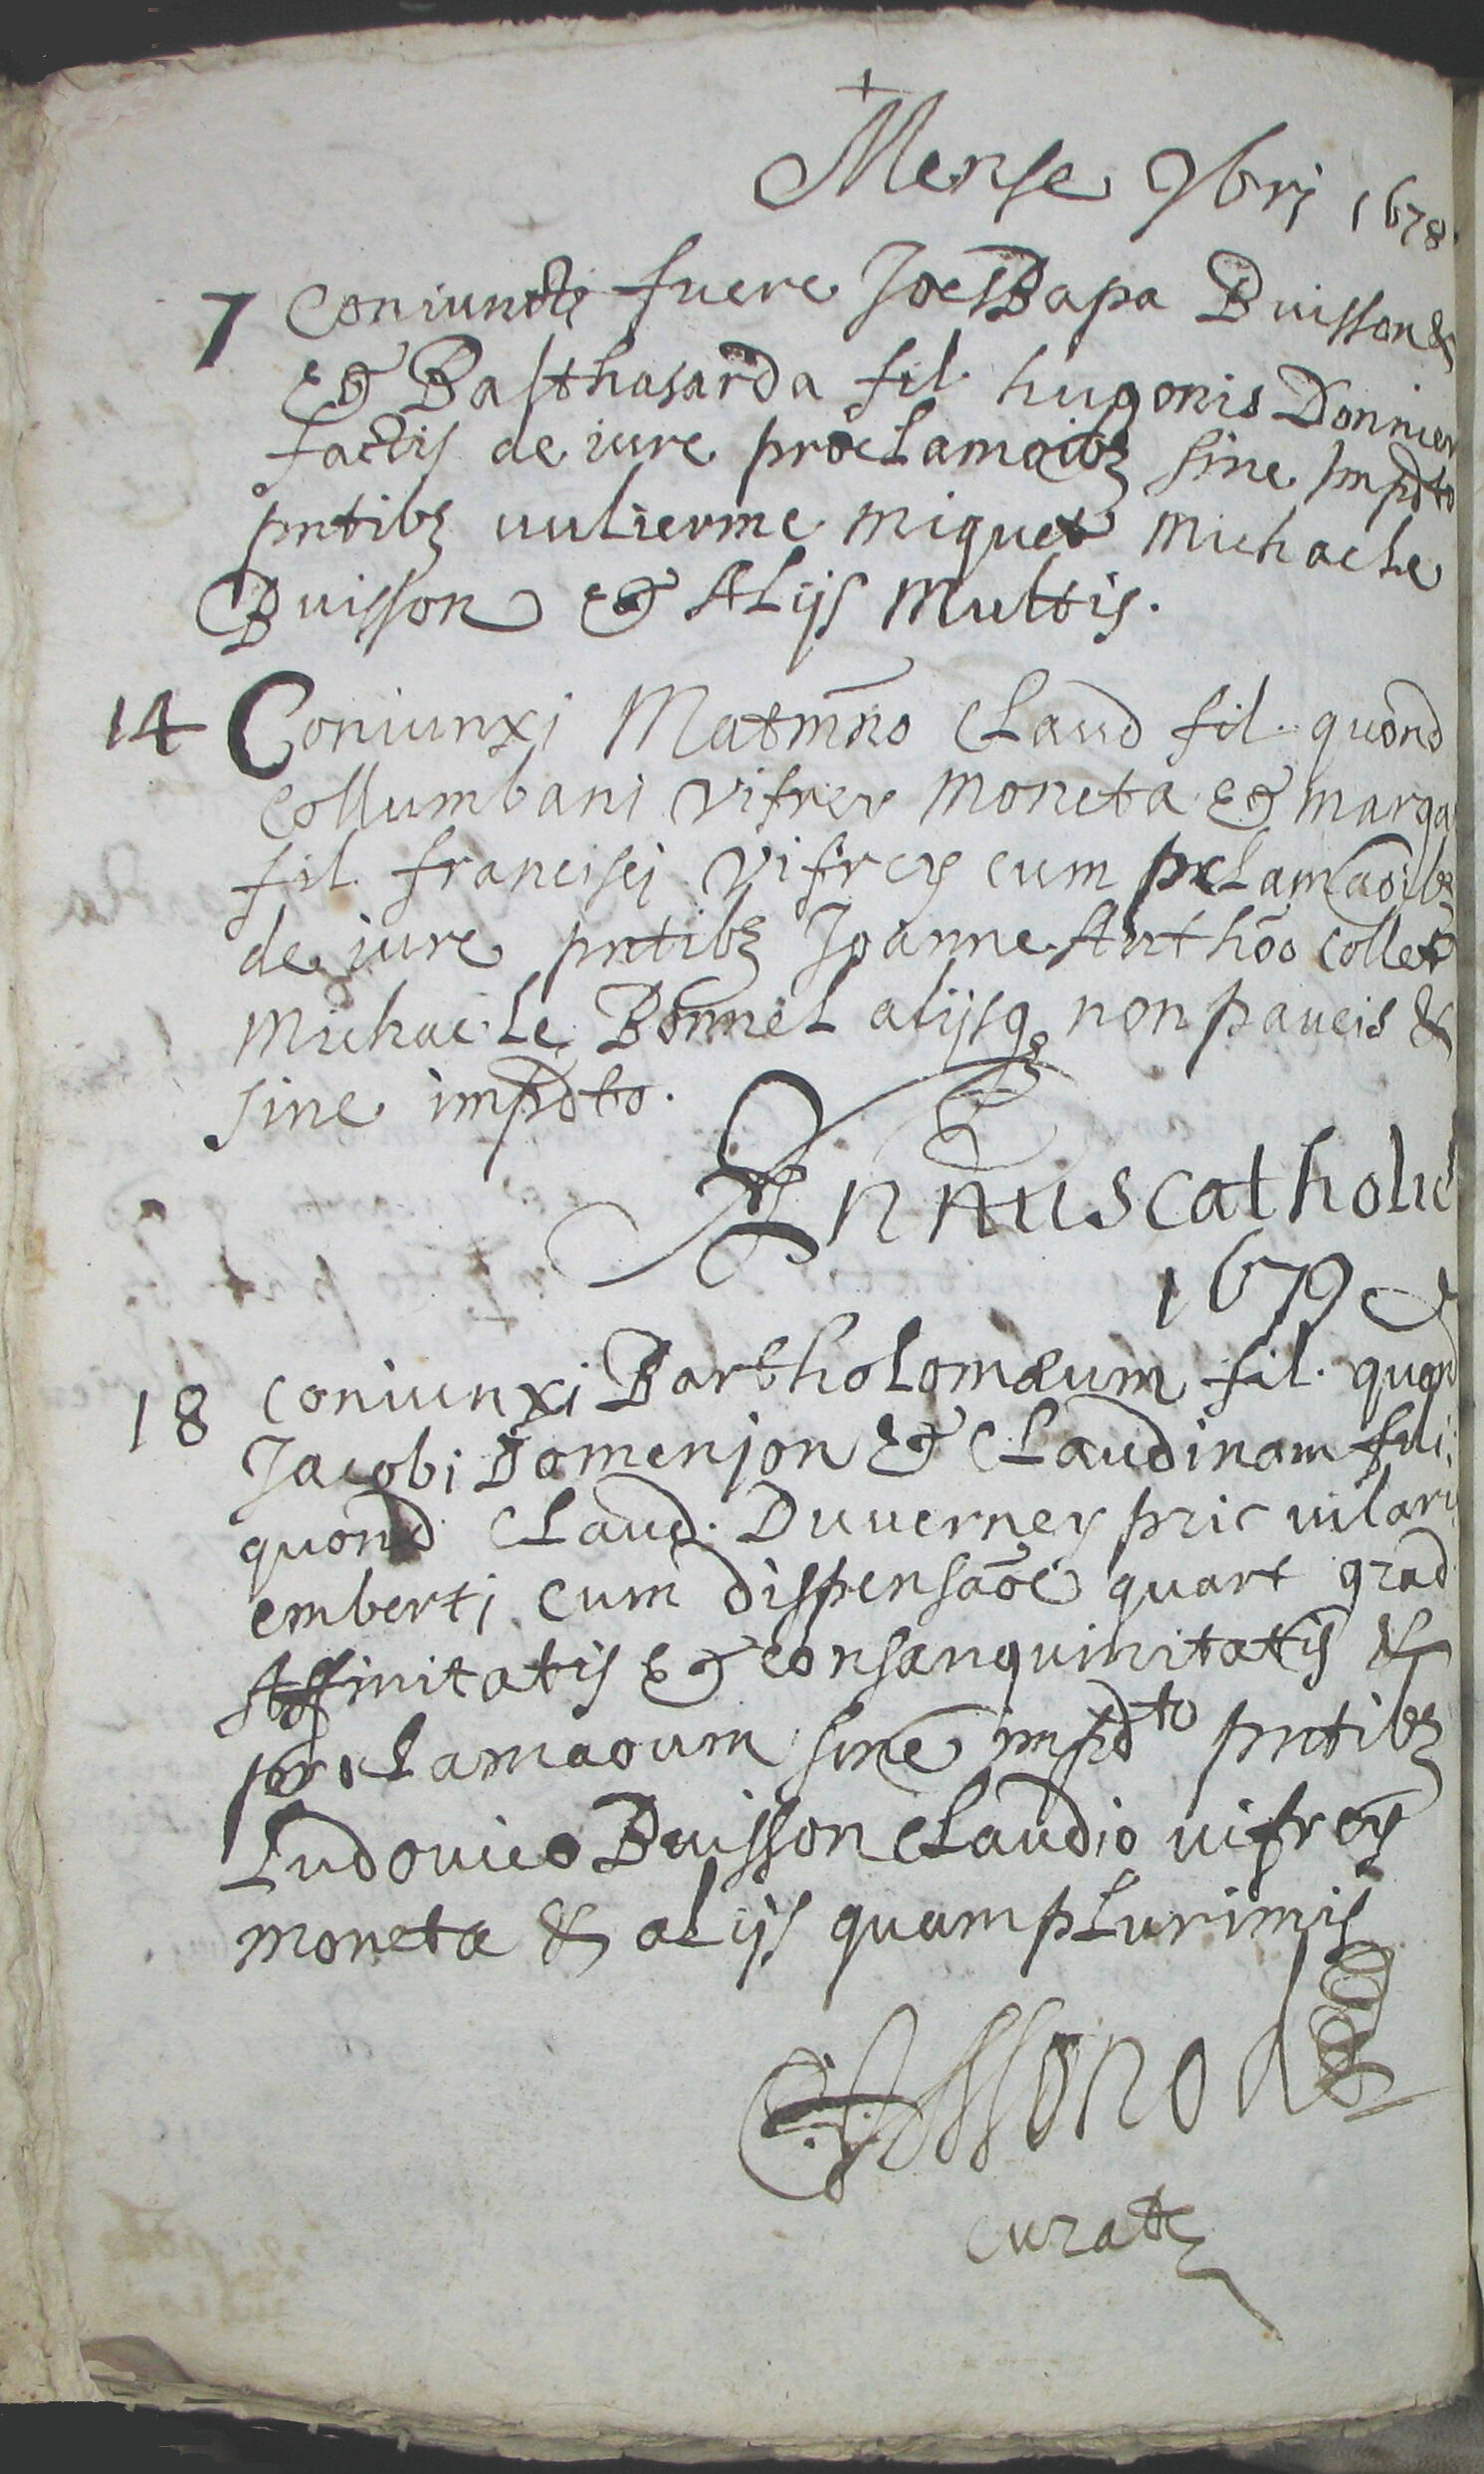 Mense 9brj 1678
7 Coniuncti fuere Joes Bapa Buisson &
& Balthasarda fil. hugonis Donnier
factis de iure proclamaoibz sine Impdto
pntibz uulierme miquet Michaele
Buisson & ALijs Multis.
14 Coniunxi Matmno CLaud fil. quond
Collumbani Vifrey Moneta & marga
fil. franciscj Vifrey cum pclamaoibz
de iure pntibz Joanne Anthoo Collet
Michaele Bonnel alijsq non paucis &
sine impdto.
Annus catholic
1679
18 Coniunxi Bartholomæum fil. quond
Jacobi Domenjon & CLaudinam fili.
quond CLaud. Duuerney pric uilari
embertj cum dispensaoe quart grad
Affinitatis & consanguinitatis &
proclamaoum sine impdto pntibz
Ludouico Buisson CLaudio uifrey
moneta & alijs quamplurimis
curatz